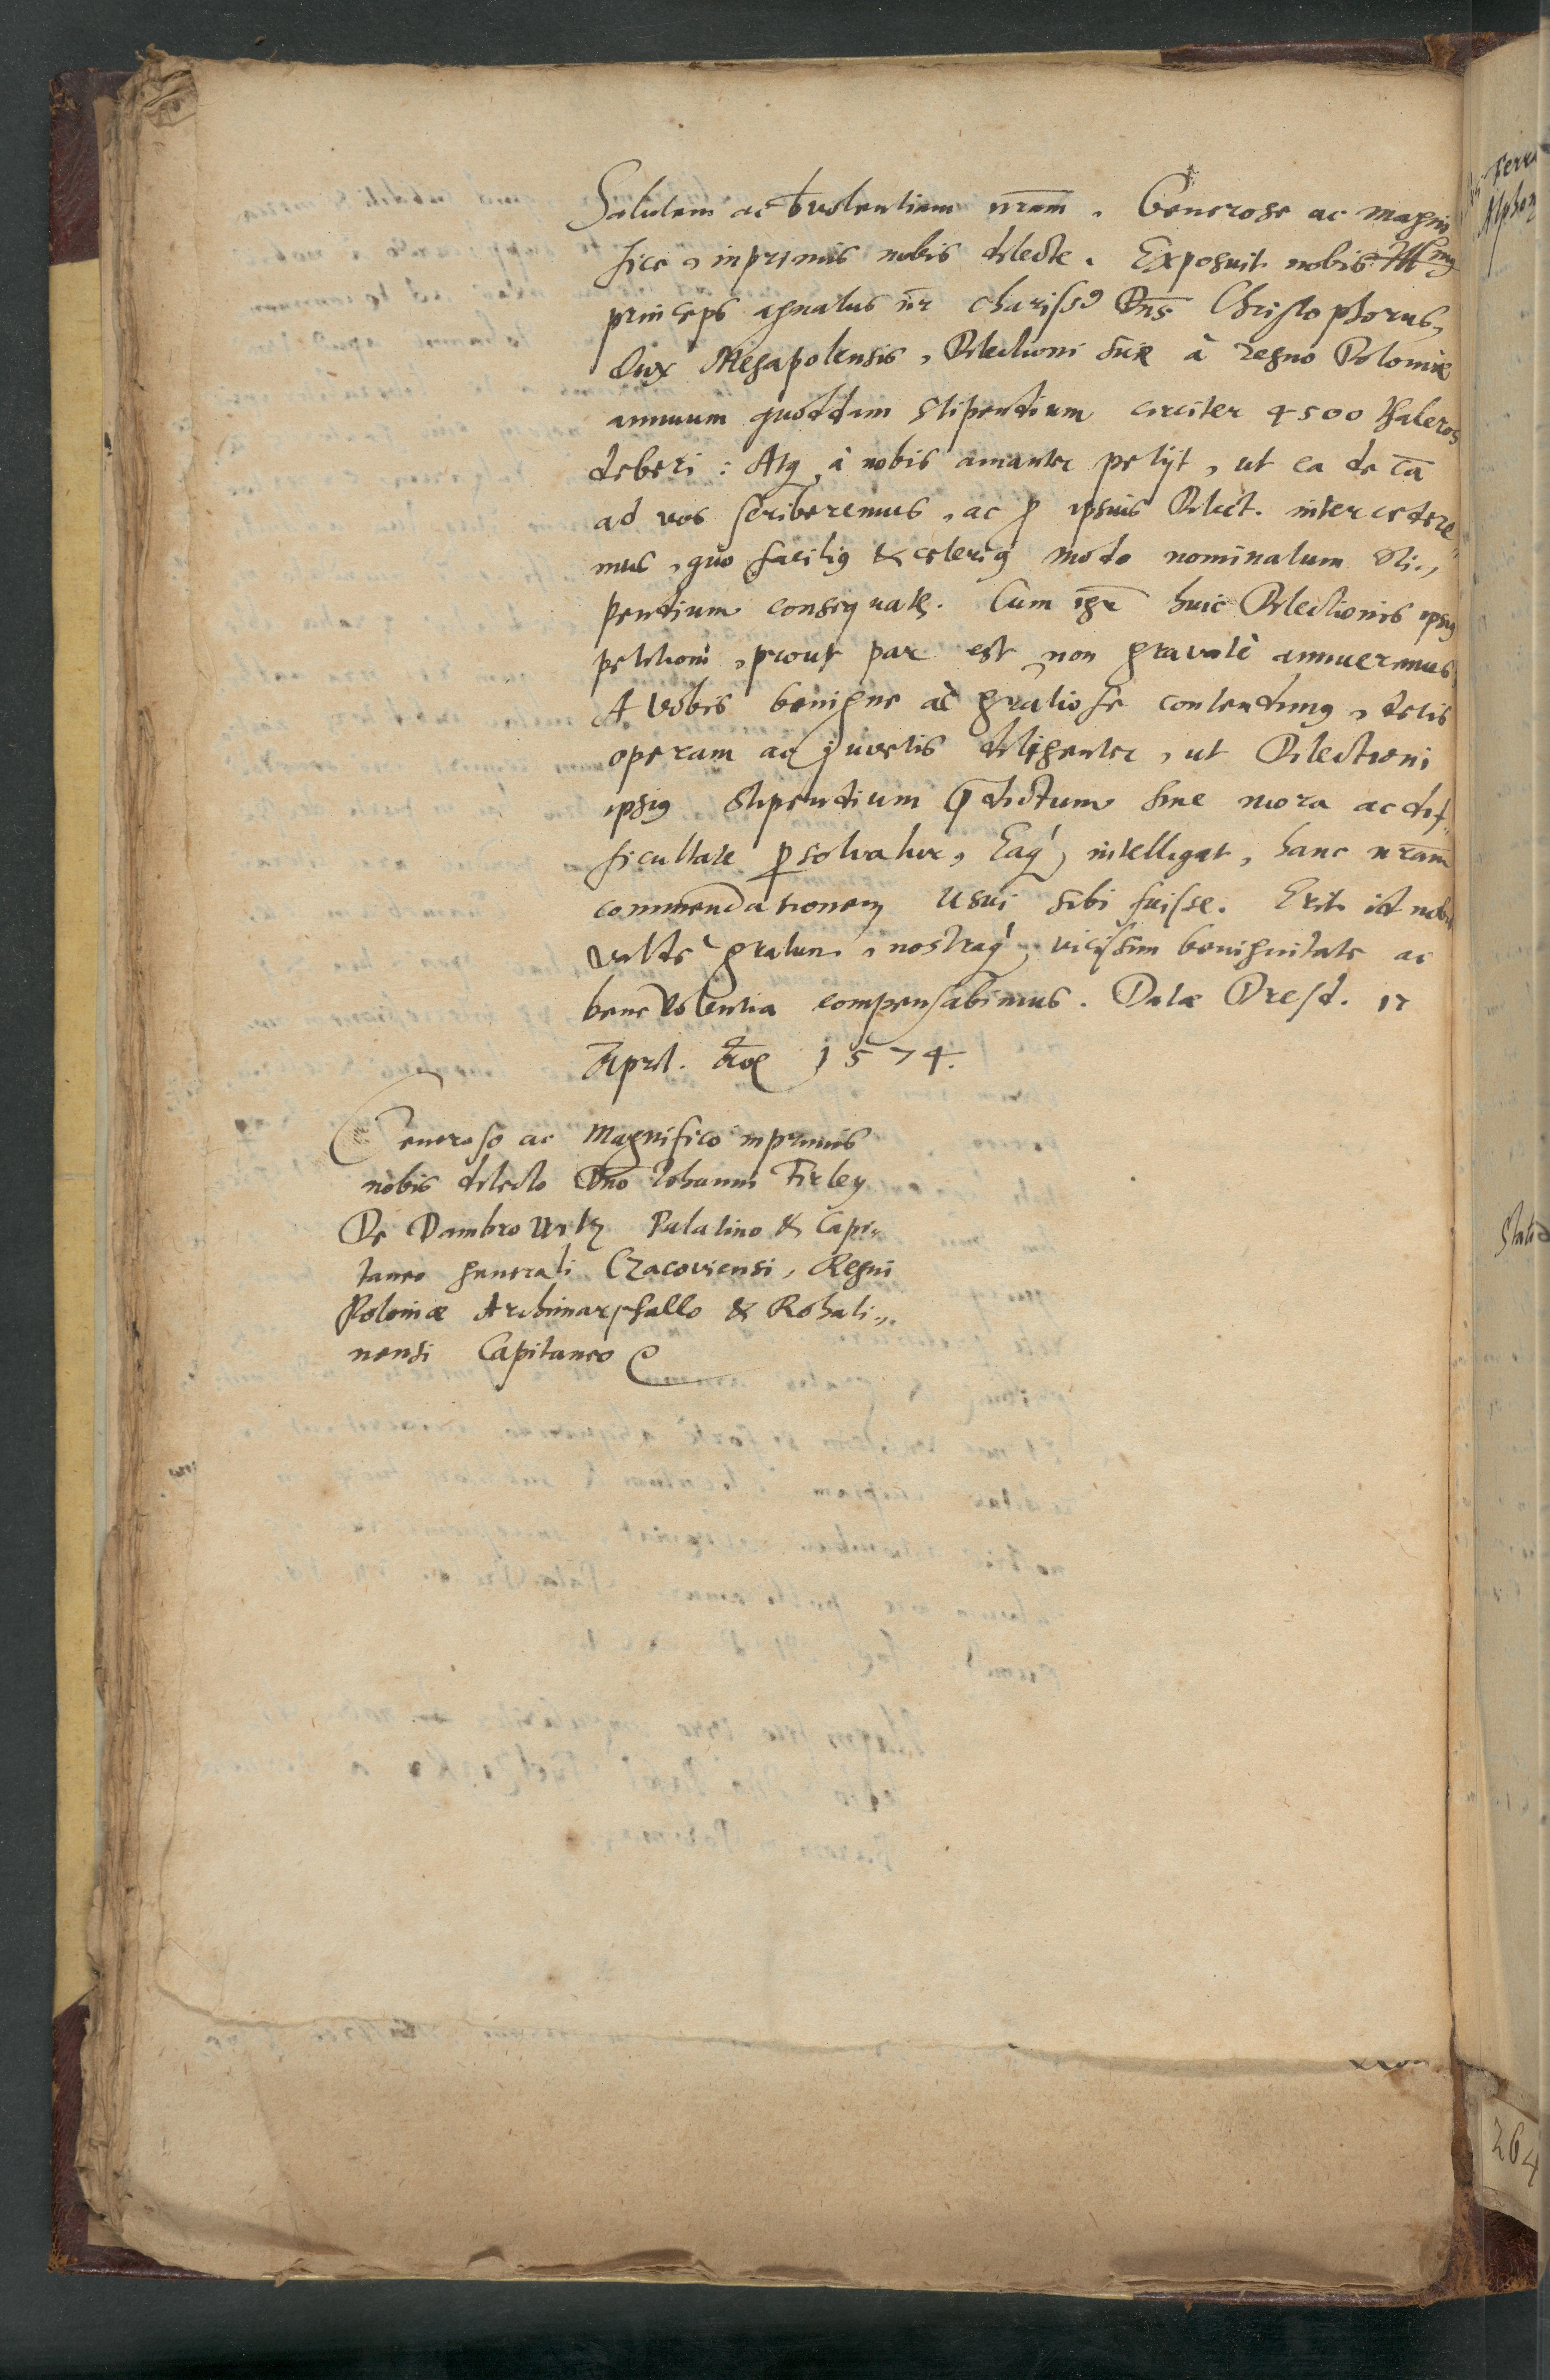 Salutem ac bvolentiam nram. Generose ac magni
fice, inprimis nobis dilecte. Exposuit nobis Illmus
princeps agnatus nr chariss9 Dns Christophorus,
Dux Megapolensis, Dilectioni suæ à regno Poloniæ
annuum quoddam stipendium circiter 4500 thaleros
deberi: Atq, à nobis amanter petijt, ut ea de ca
ad vos scriberemus, ac p ipsius Dilect. intercedere„
mus, quo facilius & celerius modo nominatum sti„
pendium consequatur. Cum igr huic Dilectionis ipsius
petitioni, prout par est, non gravatè annueremus,
A vobis benigne ac gratiose contendimus, detis
operam ac juvetis diligenter, ut Dilectioni
ipsius stipendium prædictum sine mora ac dif„
ficultate psolvatur, Eaq, intelligat, hanc nram
commendationem usui sibi fuisse. Erit id nobis
valdè gratum, nostraq, vicissim benignitate ac
benevolentia compensabimus. Datæ Dresd. 12
April. 1574.
Generoso ac Magnifico inprimis
nobis dilecto Dno Iohanni Firley
De Dambrowitz Palatino & Capi„
taneo generali Cracoviensi, Regni
Poloniæ Archimarschallo & Rohati„
nensi Capitaneo
264